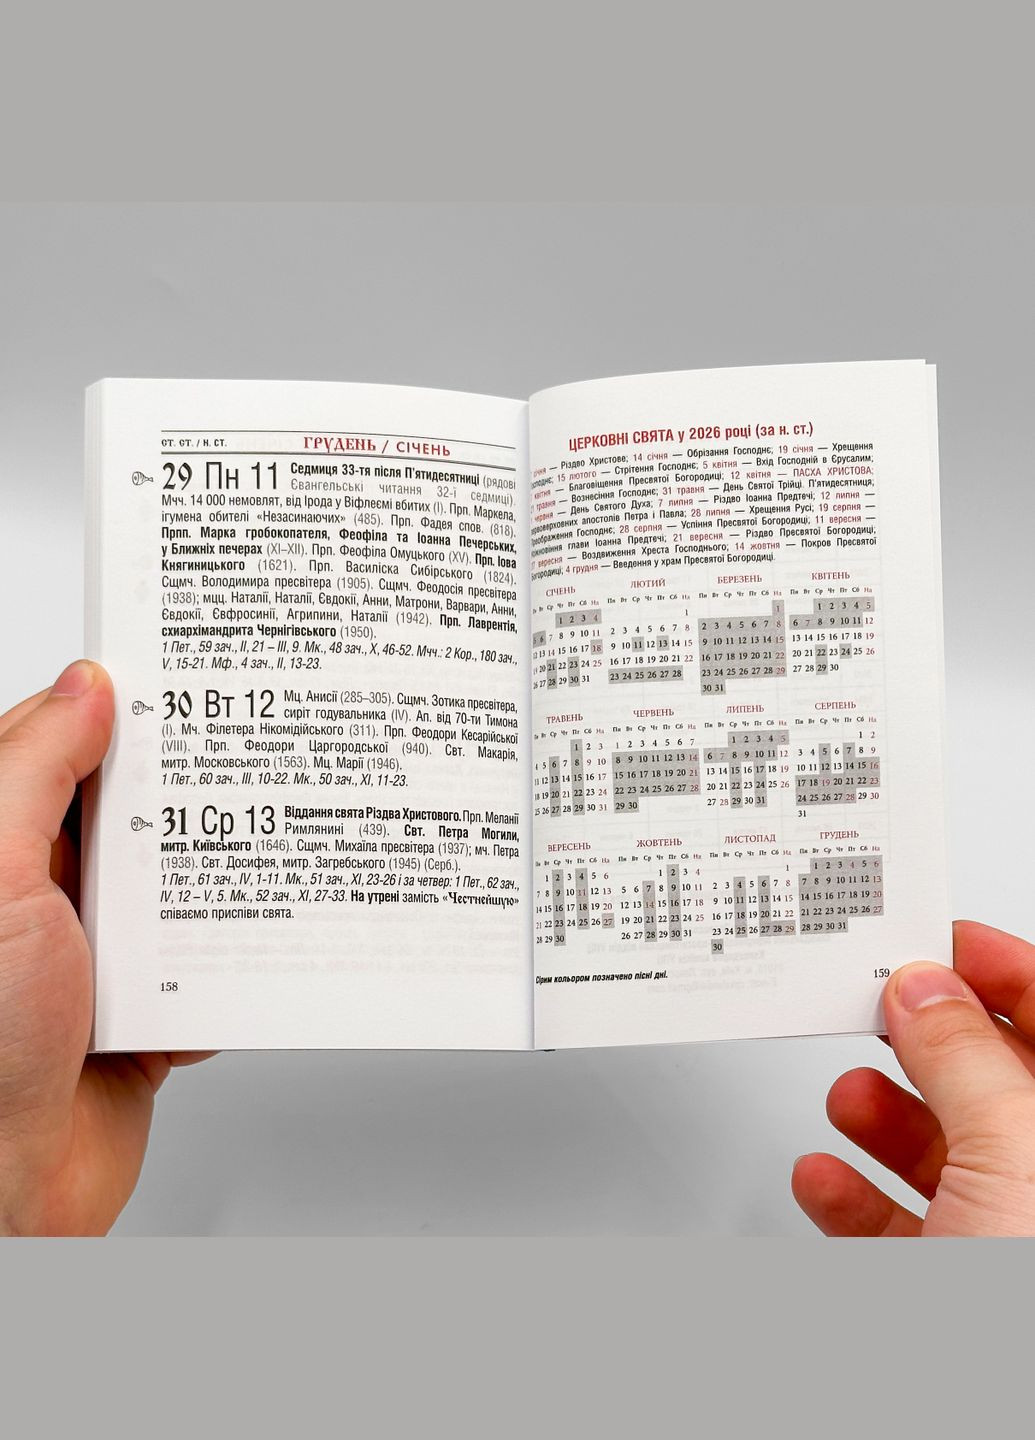 СТ. СТ. / Н. СТ. ГРУДЕНЬ / СІЧЕНЬ
29 Пн 11 Седмиця 33-тя після П'ятидесятниці (рядові
Євангельські читання 32-ї седмиці).
Мчч. 14 000 немовлят, від Ірода у Віфлеємі вбитих (І). Прп. Маркела,
ігумена обителі «Незасинаючих» (485). Прп. Фадея спов. (818).
Прпп. Марка гробокопателя, Феофіла та Іоанна Печерських,
у Ближніх печерах (XI–XII). Прп. Феофіла Омуцького (XV). Прп. Іова
Княгиницького (1621). Прп. Василіска Сибірського (1824).
Сщмч. Володимира пресвітера (1905). Сщмч. Феодосія пресвітера
(1938); мцц. Наталії, Наталії, Євдокії, Анни, Матрони, Варвари, Анни,
Євдокії, Євфросинії, Агрипини, Наталії (1942). Прп. Лаврентія,
схиархімандрита Чернігівського (1950).
1 Пет., 59 зач., II, 21 – III, 9. Мк., 48 зач., X, 46-52. Мчч.: 2 Кор., 180 зач.,
V, 15-21. Мф., 4 зач., II, 13-23.
30 Вт 12 Мц. Анисії (285–305). Сщмч. Зотика пресвітера,
сиріт годувальника (IV). Ап. від 70-ти Тимона
(І). Мч. Філетера Нікомідійського (311). Прп. Феодори Кесарійської
(VIII). Прп. Феодори Царгородської (940). Свт. Макарія,
митр. Московського (1563). Мц. Марії (1946).
1 Пет., 60 зач., III, 10-22. Мк., 50 зач., XI, 11-23.
31 Ср 13 Віддання свята Різдва Христового. Прп. Меланії
Римлянині (439). Свт. Петра Могили,
митр. Київського (1646). Сщмч. Михаїла пресвітера (1937); мч. Петра
(1938). Свт. Досифея, митр. Загребського (1945) (Серб.).
1 Пет., 61 зач., IV, 1-11. Мк., 51 зач., XI, 23-26 і за четвер: 1 Пет., 62 зач.,
IV, 12 – V, 5. Мк., 52 зач., XI, 27-33. На утрені замість «Честнейшую»
співаємо приспіви свята.
158
ЦЕРКОВНІ СВЯТА у 2026 році (за н. ст.)
січня — Різдво Христове; 14 січня — Обрізання Господнє; 19 січня — Хрещення
Господнє; 15 лютого — Стрітення Господнє; 5 квітня — Вхід Господній в Єрусалим;
квітня — Благовіщення Пресвятої Богородиці; 12 квітня — ПАСХА ХРИСТОВА;
травня — Вознесіння Господнє; 31 травня — День Святої Трійці. П'ятидесятниця;
червня — День Святого Духа; 7 липня — Різдво Іоанна Предтечі; 12 липня —
первоверховних апостолів Петра і Павла; 28 липня — Хрещення Русі; 19 серпня —
Преображення Господнє; 28 серпня — Успіння Пресвятої Богородиці; 11 вересня —
глави Іоанна Предтечі; 21 вересня — Різдво Пресвятої Богородиці;
вересня — Воздвиження Хреста Господнього; 14 жовтня — Покров Пресвятої
Богородиці; 4 грудня — Введення у храм Пресвятої Богородиці.
СІЧЕНЬ ЛЮТИЙ БЕРЕЗЕНЬ КВІТЕНЬ
Пн Вт Ср Чт Пт Сб Нд Пн Вт Ср Чт Пт Сб Нд Пн Вт Ср Чт Пт Сб Нд Пн Вт Ср Чт Пт Сб Нд
1 2 3 4 1 1 1 2 3 4 5
5 6 7 8 9 10 11 2 3 4 5 6 7 8 2 3 4 5 6 7 8 6 7 8 9 10 11 12
12 13 14 15 16 17 18 9 10 11 12 13 14 15 9 10 11 12 13 14 15 13 14 15 16 17 18 19
19 20 21 22 23 24 25 16 17 18 19 20 21 22 16 17 18 19 20 21 22 20 21 22 23 24 25 26
26 27 28 29 30 31 23 24 25 26 27 28 23 24 25 26 27 28 29 27 28 29 30
30 31
ТРАВЕНЬ ЧЕРВЕНЬ ЛИПЕНЬ СЕРПЕНЬ
Пн Вт Ср Чт Пт Сб Нд Пн Вт Ср Чт Пт Сб Нд Пн Вт Ср Чт Пт Сб Нд Пн Вт Ср Чт Пт Сб Нд
1 2 3 1 2 3 4 5 6 7 1 2 3 4 5 1 2
4 5 6 7 8 9 10 8 9 10 11 12 13 14 6 7 8 9 10 11 12 3 4 5 6 7 8 9
11 12 13 14 15 16 17 15 16 17 18 19 20 21 13 14 15 16 17 18 19 10 11 12 13 14 15 16
18 19 20 21 22 23 24 22 23 24 25 26 27 28 20 21 22 23 24 25 26 17 18 19 20 21 22 23
25 26 27 28 29 30 31 29 30 27 28 29 30 31 24 25 26 27 28 29 30
31
ВЕРЕСЕНЬ ЖОВТЕНЬ ЛИСТОПАД ГРУДЕНЬ
Пн Вт Ср Чт Пт Сб Нд Пн Вт Ср Чт Пт Сб Нд Пн Вт Ср Чт Пт Сб Нд Пн Вт Ср Чт Пт Сб Нд
1 2 3 4 5 6 1 2 3 4 1 1 2 3 4 5 6
7 8 9 10 11 12 13 5 6 7 8 9 10 11 2 3 4 5 6 7 8 7 8 9 10 11 12 13
14 15 16 17 18 19 20 12 13 14 15 16 17 18 9 10 11 12 13 14 15 14 15 16 17 18 19 20
21 22 23 24 25 26 27 19 20 21 22 23 24 25 16 17 18 19 20 21 22 21 22 23 24 25 26 27
28 29 30 26 27 28 29 30 31 23 24 25 26 27 28 29 28 29 30 31
30
Сірим кольором позначено пісні дні.
159